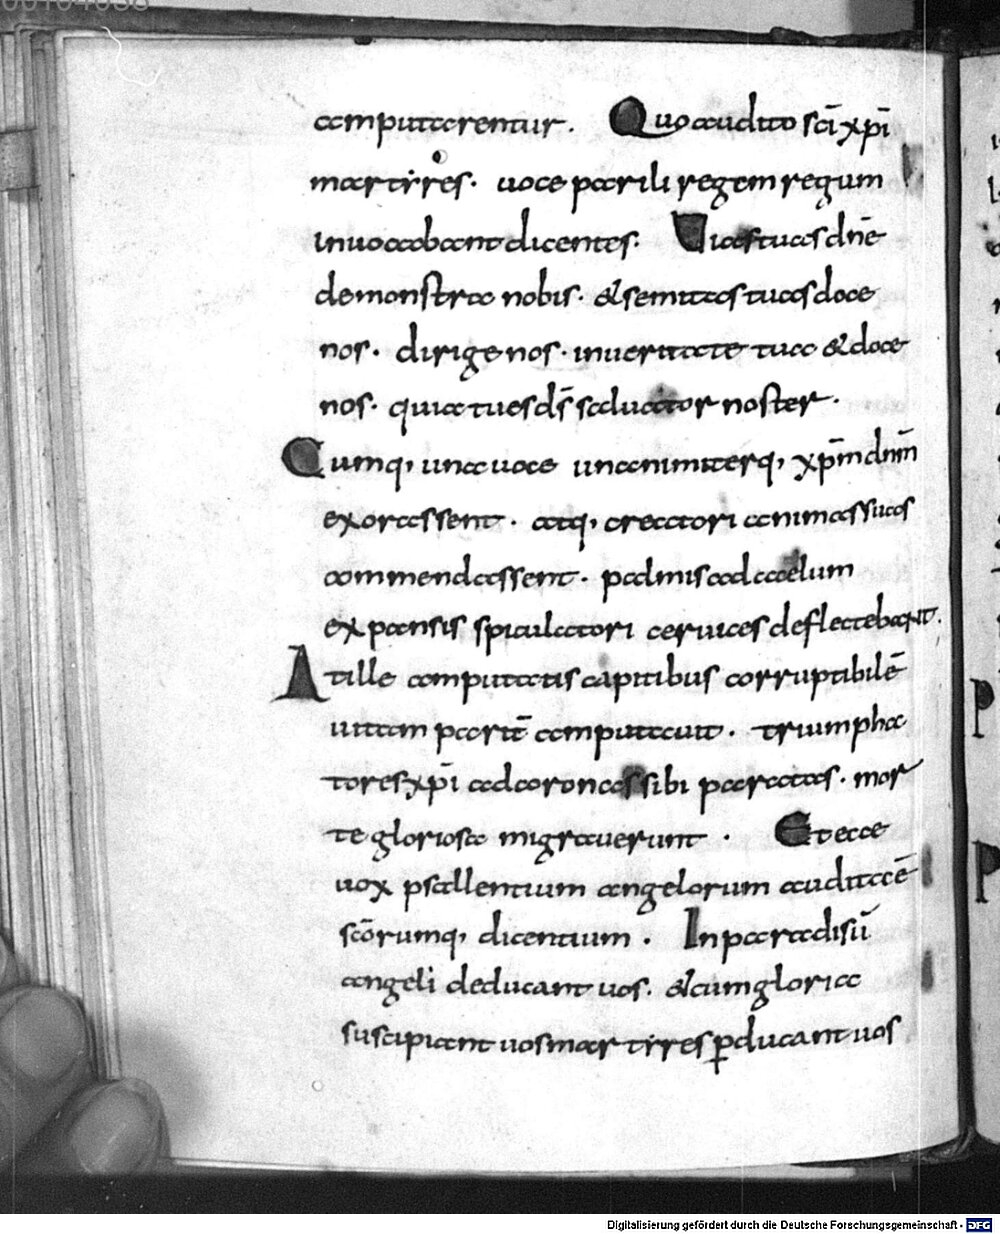 amputarentur. Quo audito sc̄i xp̄i
martyres. uoce parili regem regum
inuocabant dicentes. Uias tuas dn̄e
demonstra nobis. & semitas tuas doce
nos. dirige nos. in ueritate tua & doce
nos. quia tu es ds̄ saluator noster.
Cumq; una uoce unanimiterq; xp̄m dnm̄
exorassent. atq; creatori animas suas
commendassent. palmis ad caelum
expansis spiculatori ceruices deflectebant.
At ille amputatis capitibus corruptibilē
uitam partē amputauit. triumpha
tores xp̄i ad coronas sibi paratas. mor
te gloriosa migrauerunt. Et ecce
uox psallentium angelorum audita ē
sc̄orumq; dicentium. In paradisū
angeli deducant uos. & cum gloria
suscipiant uos martyres p̄ducant uos
Digitalisierung gefördert durch die Deutsche Forschungsgemeinschaft - DFG